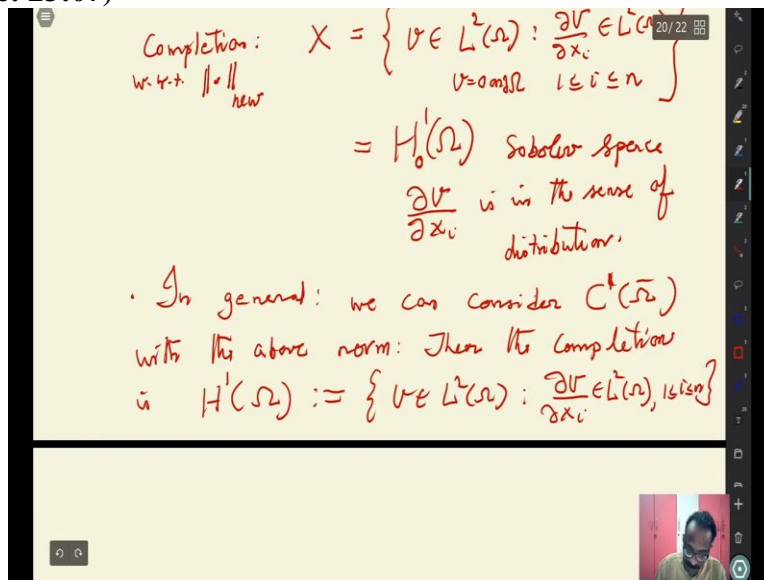 Completion: X = { v ∈ L²(Ω) : ∂v/∂xᵢ ∈ L²(Ω) }
w.r.t. ||•||new v=0 on ∂Ω 1 ≤ i ≤ n
20/22
= H₀¹(Ω) Sobolev Space
∂v/∂xᵢ is in the sense of
distribution.
. In general: we can consider C¹(Ω̄)
with the above norm: Then the completion
is H¹(Ω) := { v ∈ L²(Ω) : ∂v/∂xᵢ ∈ L²(Ω), 1≤i≤n}